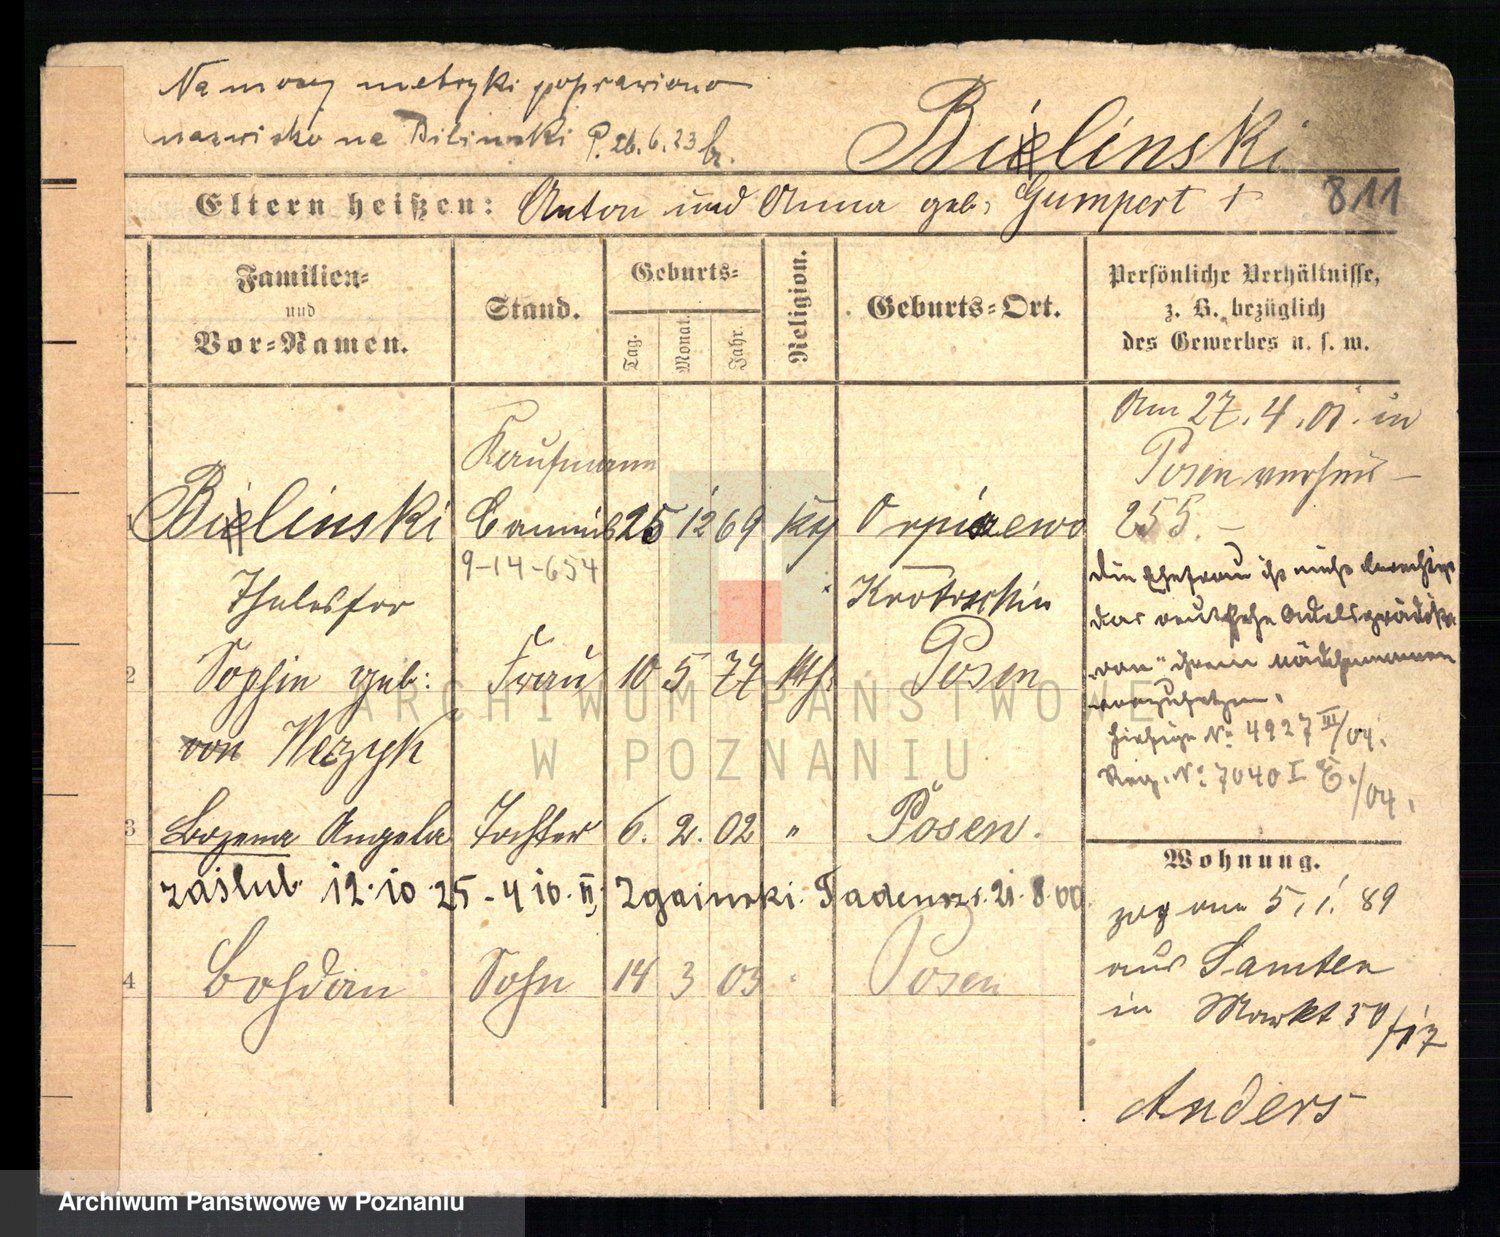 Na mocy metryki poprawiono
nazwisko na Bilinski P. 26.6.23
Bielinski
Eltern heißen: Anton und Anna geb. Gumpert +
811
Familien- und Vor-Namen.
Stand.
Geburts-
Tag.
Monat.
Jahr.
Religion.
Geburts-Ort.
Persönliche Verhältnisse,
z. B. bezüglich
des Gewerbes u. s. w.
Am 27.4.01. in
Posen verheir-
255.
Kaufmann
1 Bielinski 25 12 69 kth Orpiszewo
9-14-654
Thelesfor Krotoschin
2 Sophie geb: Frau 10 5 77 kth. Posen
von Wezyk
die Ehefrau ist nicht berechtigt
das deutsche Adelsprädikat
"von" ihrem Mädchennamen
vorzusetzen.
hiesige No 4927 III/04.
Reg. No 7040 I /04.
3 Bozena Angela Tochter 6. 2. 02 " Posen.
zaślub. 12.10.25 - 410. II, Zgainski Tadeusz 21.8.00
4 Bohdan Sohn 14 3 03 " Posen
Wohnung.
zog am 5.1.89
aus Samter
in Markt 50/
Anders
ARCHIWUM PAŃSTWOWE
W POZNANIU
Archiwum Państwowe w Poznaniu